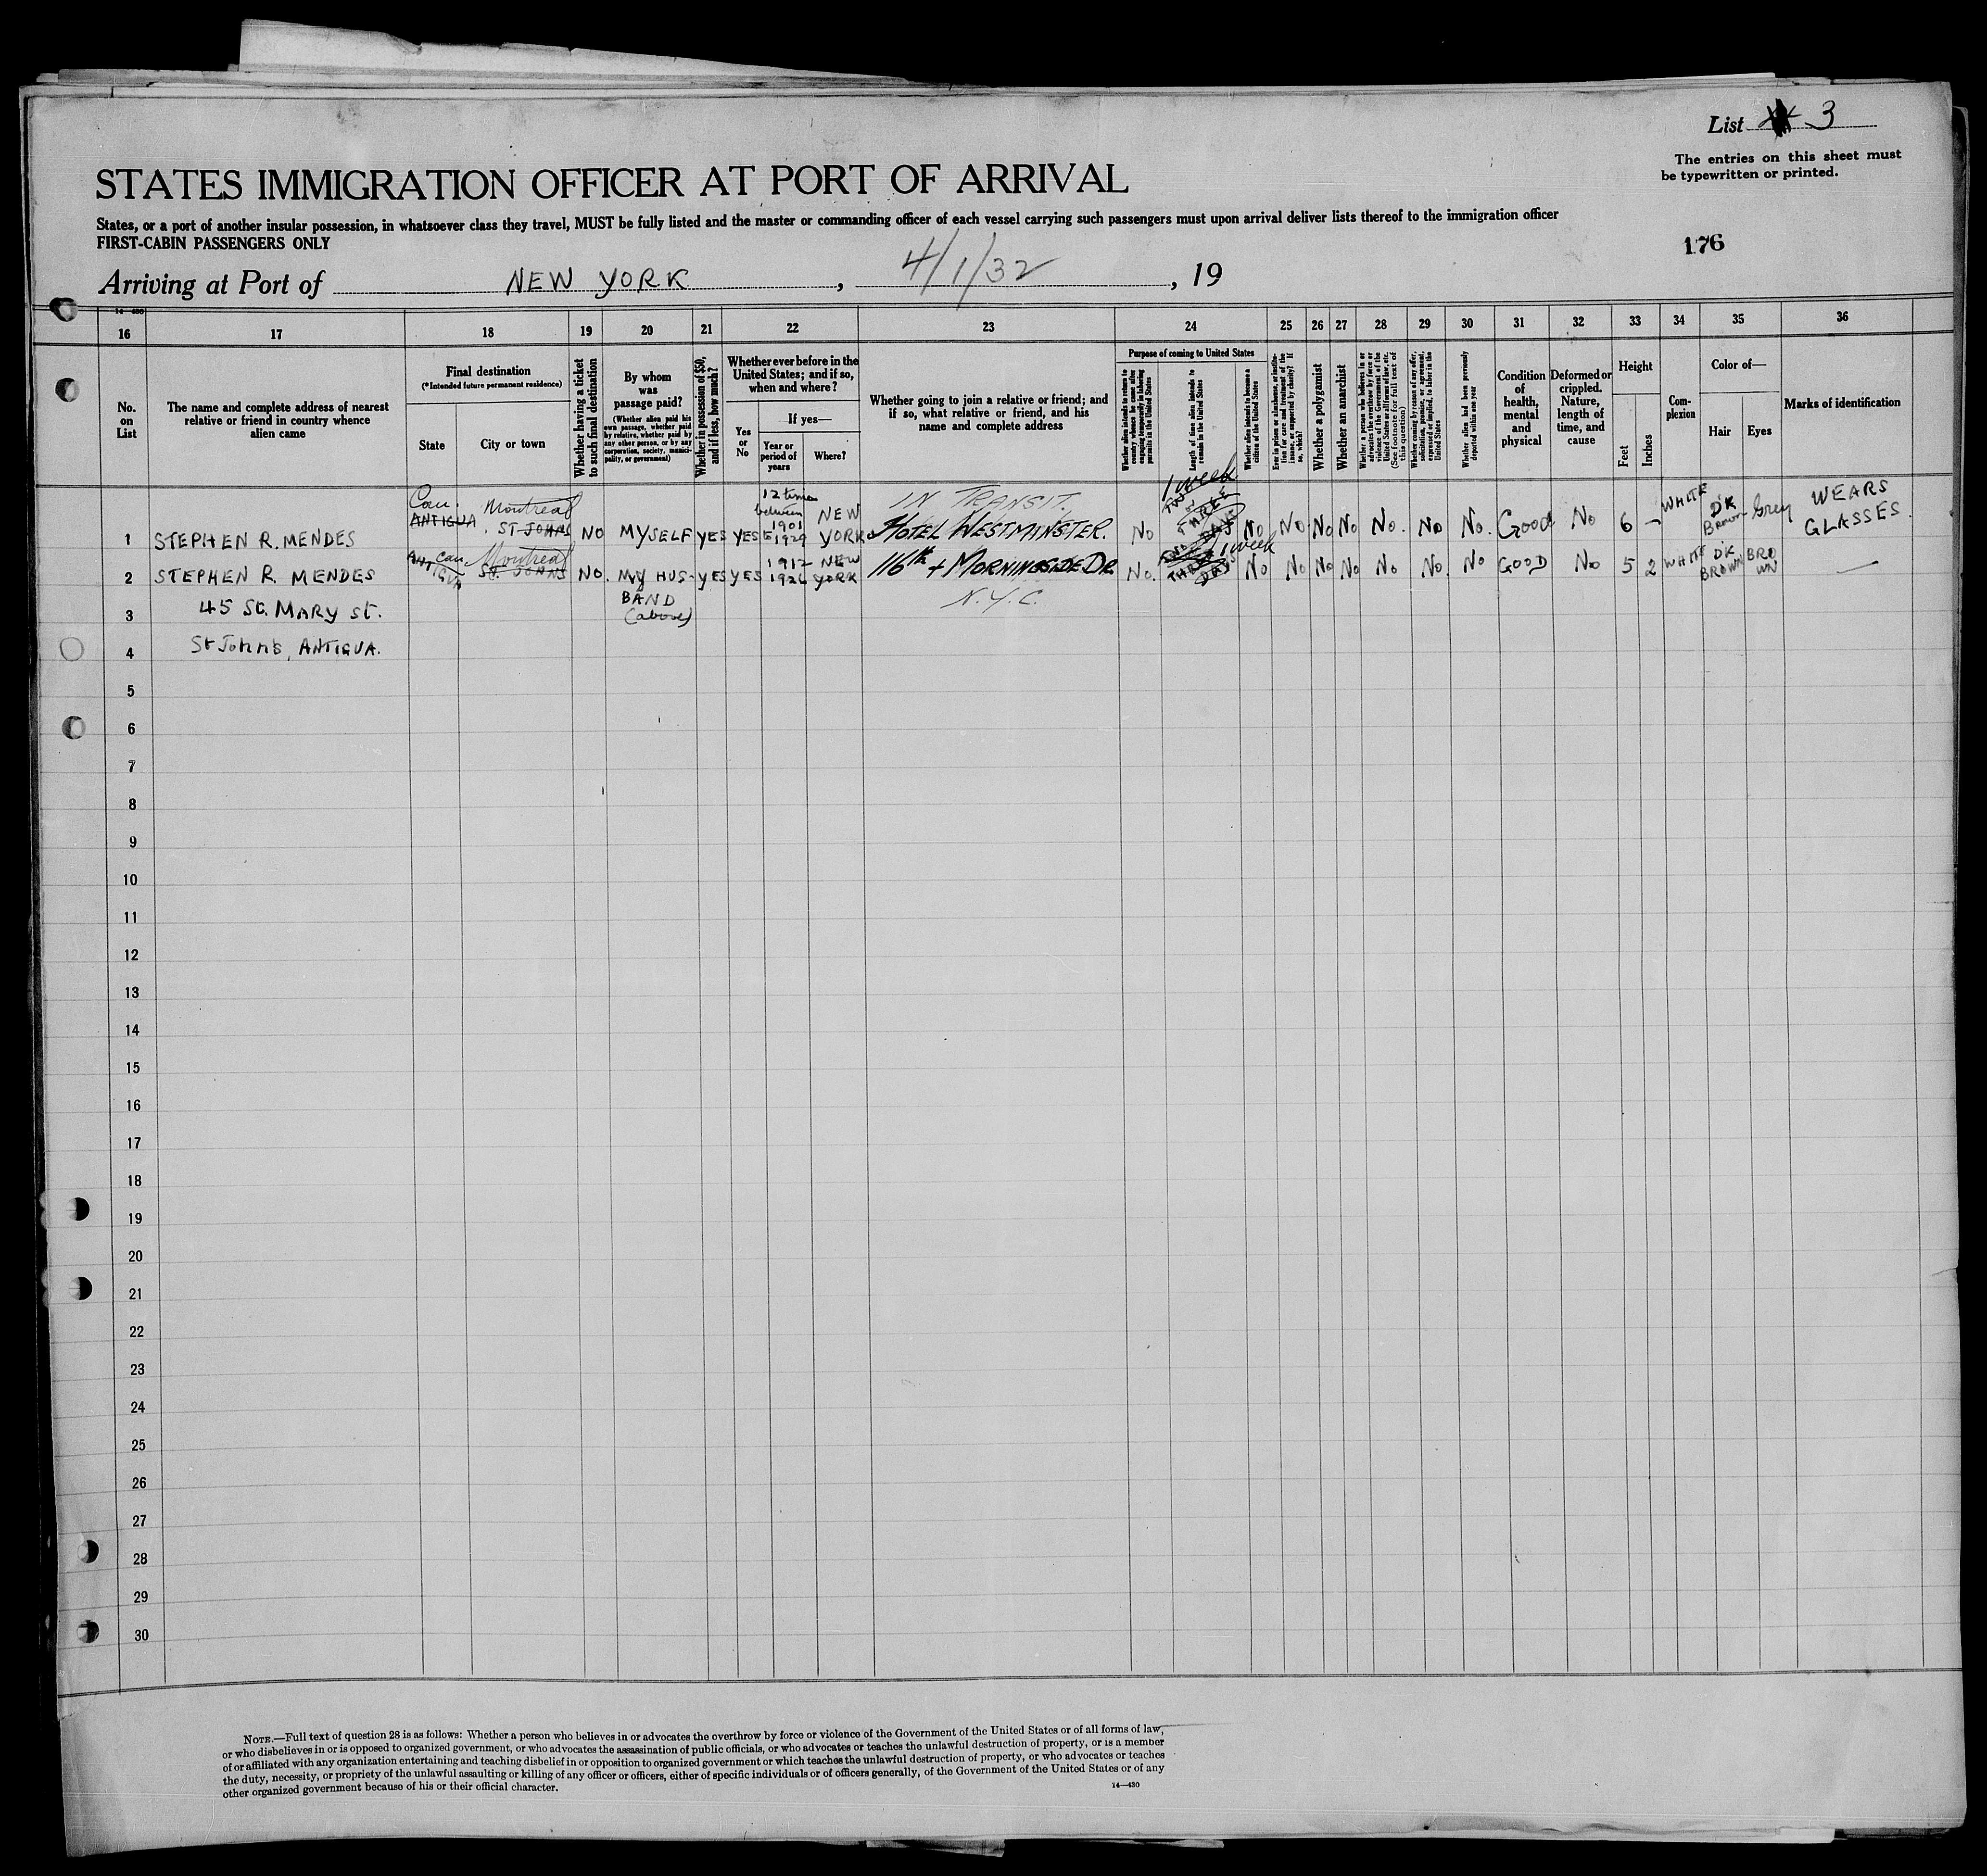 List 3
The entries on this sheet must
be typewritten or printed.
STATES IMMIGRATION OFFICER AT PORT OF ARRIVAL
States, or a port of another insular possession, in whatsoever class they travel, MUST be fully listed and the master or commanding officer of each vessel carrying such passengers must upon arrival deliver lists thereof to the immigration officer
FIRST-CABIN PASSENGERS ONLY
176
Arriving at Port of NEW YORK, 4/1/32, 19
14—430
16 17 18 19 20 21 22 23 24 25 26 27 28 29 30 31 32 33 34 35 36
No. on List
The name and complete address of nearest
relative or friend in country whence
alien came
Final destination
(*Intended future permanent residence)
State
City or town
Whether having a ticket
to such final destination
By whom
was
passage paid?
(Whether alien paid his
own passage, whether paid
by relative, whether paid by
any other person, or by any
corporation, society, munici-
pality, or government)
Whether in possession of $50,
and if less, how much?
Whether ever before in the
United States; and if so,
when and where?
Yes
or
No
If yes—
Year or
period of
years
Where?
Whether going to join a relative or friend; and
if so, what relative or friend, and his
name and complete address
Purpose of coming to United States
Whether alien intends to return to
country whence he came after
engaging temporarily in laboring
pursuits in the United States
Length of time alien intends to
remain in the United States
Whether alien intends to become a
citizen of the United States
Ever in prison or almshouse, or institu-
tion for care and treatment of the
insane, or supported by charity? If
so, which?
Whether a polygamist
Whether an anarchist
Whether a person who believes in or
advocates the overthrow by force or
violence of the Government of the
United States or all forms of law, etc.
(See footnote for full text of
this question)
Whether coming by reason of any offer,
solicitation, promise, or agreement,
expressed or implied, to labor in the
United States
Whether alien had been previously
deported within one year
Condition
of
health,
mental
and
physical
Deformed or
crippled.
Nature,
length of
time, and
cause
Height
Feet
Inches
Com-
plexion
Color of—
Hair
Eyes
Marks of identification
1 STEPHEN R. MENDES Can. ANTIGUA Montreal ST JOHNS NO MYSELF YES YES 12 times between 1901 1929 NEW YORK IN TRANSIT. HOTEL WESTMINSTER. No 1 week TWO or THREE DAYS No No No No No. No No. Good No 6 – WHITE DK Brown Grey WEARS GLASSES.
2 STEPHEN R. MENDES Can ANTIGUA Montreal St. JOHNS NO. MY HUS- YES YES 1912 1926 NEW YORK 116th + MORNINGSIDE DR No. 1 week THREE DAYS No No No No No No. No GOOD No 5 2 WHITE DK BROWN BRO WN —
3 45 St. MARY St. BAND (above) N.Y.C.
4 St John's, ANTIGUA.
5
6
7
8
9
10
11
12
13
14
15
16
17
18
19
20
21
22
23
24
25
26
27
28
29
30
NOTE.—Full text of question 28 is as follows: Whether a person who believes in or advocates the overthrow by force or violence of the Government of the United States or of all forms of law,
or who disbelieves in or is opposed to organized government, or who advocates the assassination of public officials, or who advocates or teaches the unlawful destruction of property, or is a member
of or affiliated with any organization entertaining and teaching disbelief in or opposition to organized government or which teaches the unlawful destruction of property, or who advocates or teaches
the duty, necessity, or propriety of the unlawful assaulting or killing of any officer or officers, either of specific individuals or of officers generally, of the Government of the United States or of any
other organized government because of his or their official character.
14—430